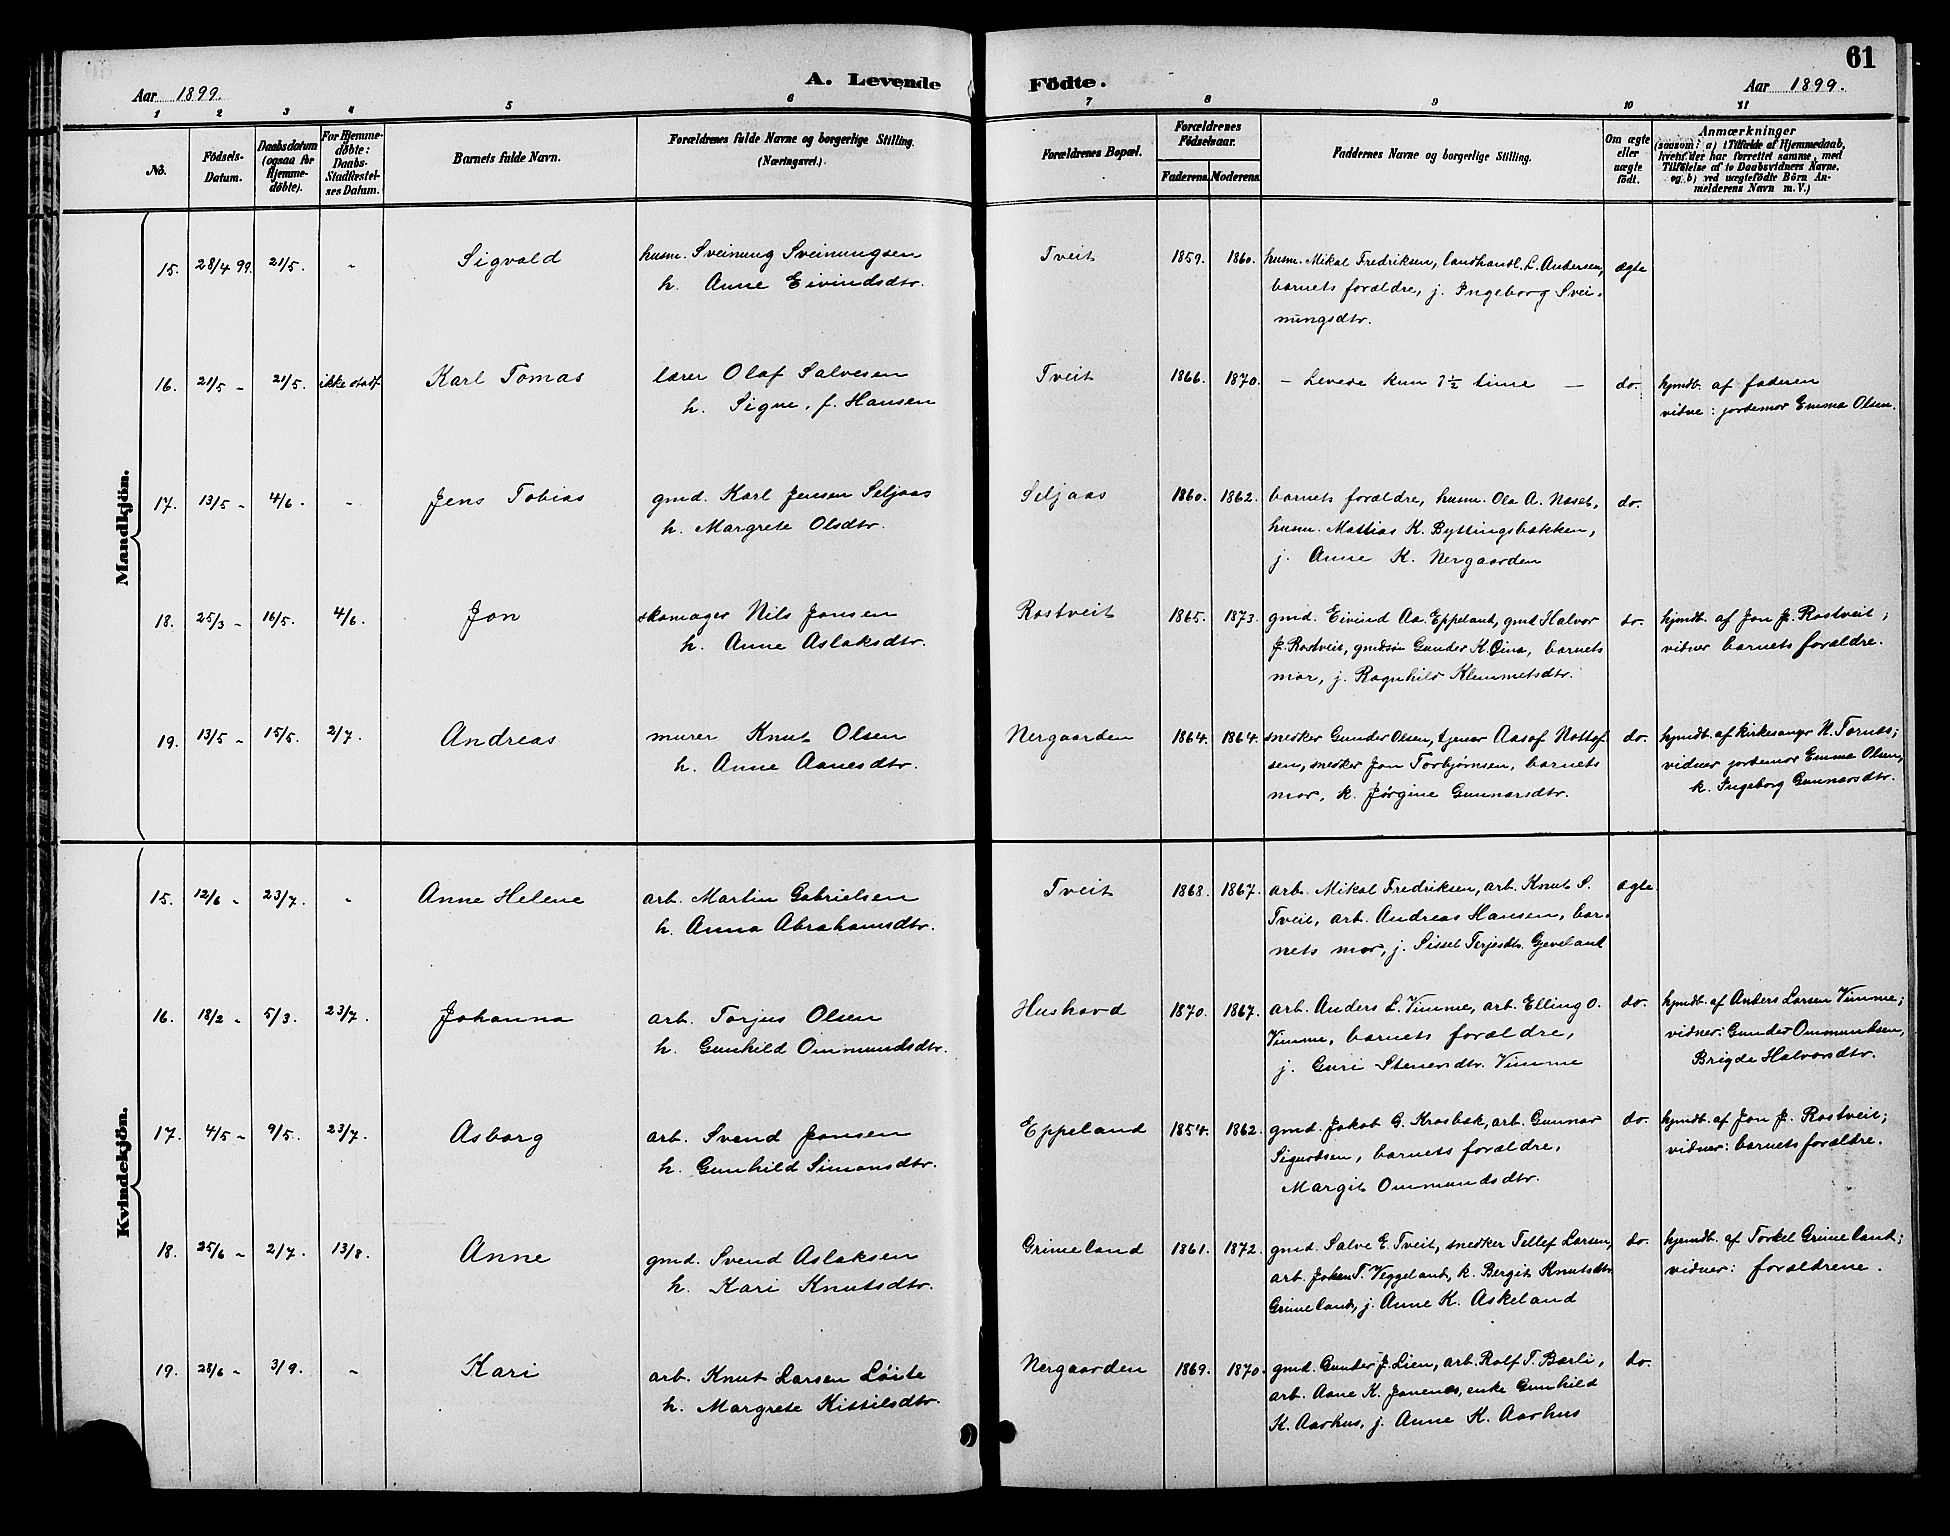 61
A. Levende Födte.
Aar 1899. Aar 1899.
1 2 3 4 5 6 7 8 9 10 11
No.
Födsels-Datum.
Daabsdatum (ogsaa för Hjemme-döbte).
For Hjemme-döbte: Daabs-Stadfæstel-ses Datum.
Barnets fulde Navn.
Forældrenes fulde Navne og borgerlige Stilling.
(Næringsvei.)
Forældrenes Bopæl.
Forældrenes Födselsaar.
Faderens. Moderens.
Faddernes Navne og borgerlige Stilling.
Om ægte eller uægte födt.
Anmærkninger
(saasom: a) i Tilfælde af Hjemmedaab,
hvem der har forrettet samme, med
Tilföielse af to Daabsvidners Navne,
og b) ved uægtefödte Börn An-
melderens Navn m. V.)
Mandkjön.
15. 28/4 99. 21/5. - Sigvald husm. Sveinung Sveinungsen Tveit 1859. 1860. husm. Mikal Fredriksen, landhandl. L. Andersen, ægte
h. Anne Eivindsdtr. barnets forældre, j. Ingeborg Svei-
nungsdtr.
16. 21/5 - 21/5. ikke stadf. Karl Tomas lærer Olaf Salvesen Tveit 1866. 1870. - Levede kun 7½ time - do. hjmdb. af faderen
h. Signe, f. Hansen vidne: jordemor Emma Olsen.
17. 13/5 - 4/6. - Jens Tobias gmd. Karl Jensen Seljaas Seljaas 1860. 1862. barnets forældre, husm. Ola A. Næset, do.
h. Margrete Olsdtr. husm. Mattias K. Byttingsbakken,
j. Anne K. Nergaarden
18. 25/3 - 16/5. 4/6. Jon skomager Nils Jensen Rostveit 1865. 1873. gmd. Eivind Aa. Eppeland, gmd Halvor do. hjmdb. af Jon J. Rostveit;
h. Anne Aslaksdtr. J. Rostveit, gmdsøn Gunder K. barnets vidner barnets forældre.
mor, j. Ragnhild Klemmetsdtr.
19. 13/5 - 15/5. 2/7. Andreas murer Knut Olsen Nergaarden 1864. 1864. snedker Gunder Olsen, tjener Aasof Nottof do. hjmdb. af kirkesanger N. Tornes;
h. Anne Aanesdtr. sen, snedker Jon Torbjørnsen, barnets vidner jordemor Emma Olsen,
mor, k. Jørgine Gunnarsdtr. k. Ingeborg Gunnarsdtr.
Kvindekjön.
15. 12/6 - 23/7. - Anne Helene arb. Martin Gabrielsen Tveit 1868. 1867. arb. Mikal Fredriksen, arb. Knut S. ægte
h. Anna Abrahamsdtr. Tveit, arb. Andreas Hansen, bar-
nets mor, j. Sissel Terjesdtr. Gjeveland
16. 18/2 - 5/3. 23/7. Johanna arb. Torjus Olsen Hushovd 1870. 1867. arb. Anders L. Vimme, arb. Elling O. do. hjmdb. af Anders Larsen Vimme;
h. Gunhild Ommundsdtr. Vimme, barnets forældre, vidner: Gunder Ommundsen,
j. Guri Stenersdtr. Vimme Brigde Halvorsdtr.
17. 4/5 - 9/5. 23/7. Asborg arb. Svend Jensen Eppeland 1854. 1862. gmd. Jakob G. Krosbak, arb. Gunnar do. hjmdb. af Jon J. Rostveit;
h. Gunhild Simonsdtr. Sigurdsen, barnets forældre, vidner: barnets forældre.
Margit Ommundsdtr.
18. 25/6 - 2/7. 13/8. Anne gmd. Svend Aslaksen Grimeland 1861. 1872. gmd. Salve E. Tveit, snedker Tellef Larsen, do. hjemdb. af Torkel Grimeland;
h. Kari Knutsdtr. arb. Johan T. Veggeland, k. Bergit Knutsdtr. vidner: forældrene.
Grimeland, j. Anne K. Askeland
19. 28/6 - 3/9. - Kari arb. Knut Larsen Løite Nergaarden 1869. 1870. gmd. Gunder J. Lien, arb. Rolf T. Bærli, do.
h. Margrete Kittilsdtr. arb. Aane K. Jonenes, enke Gunhild
K. Aarhus, j. Anne K. Aarhus